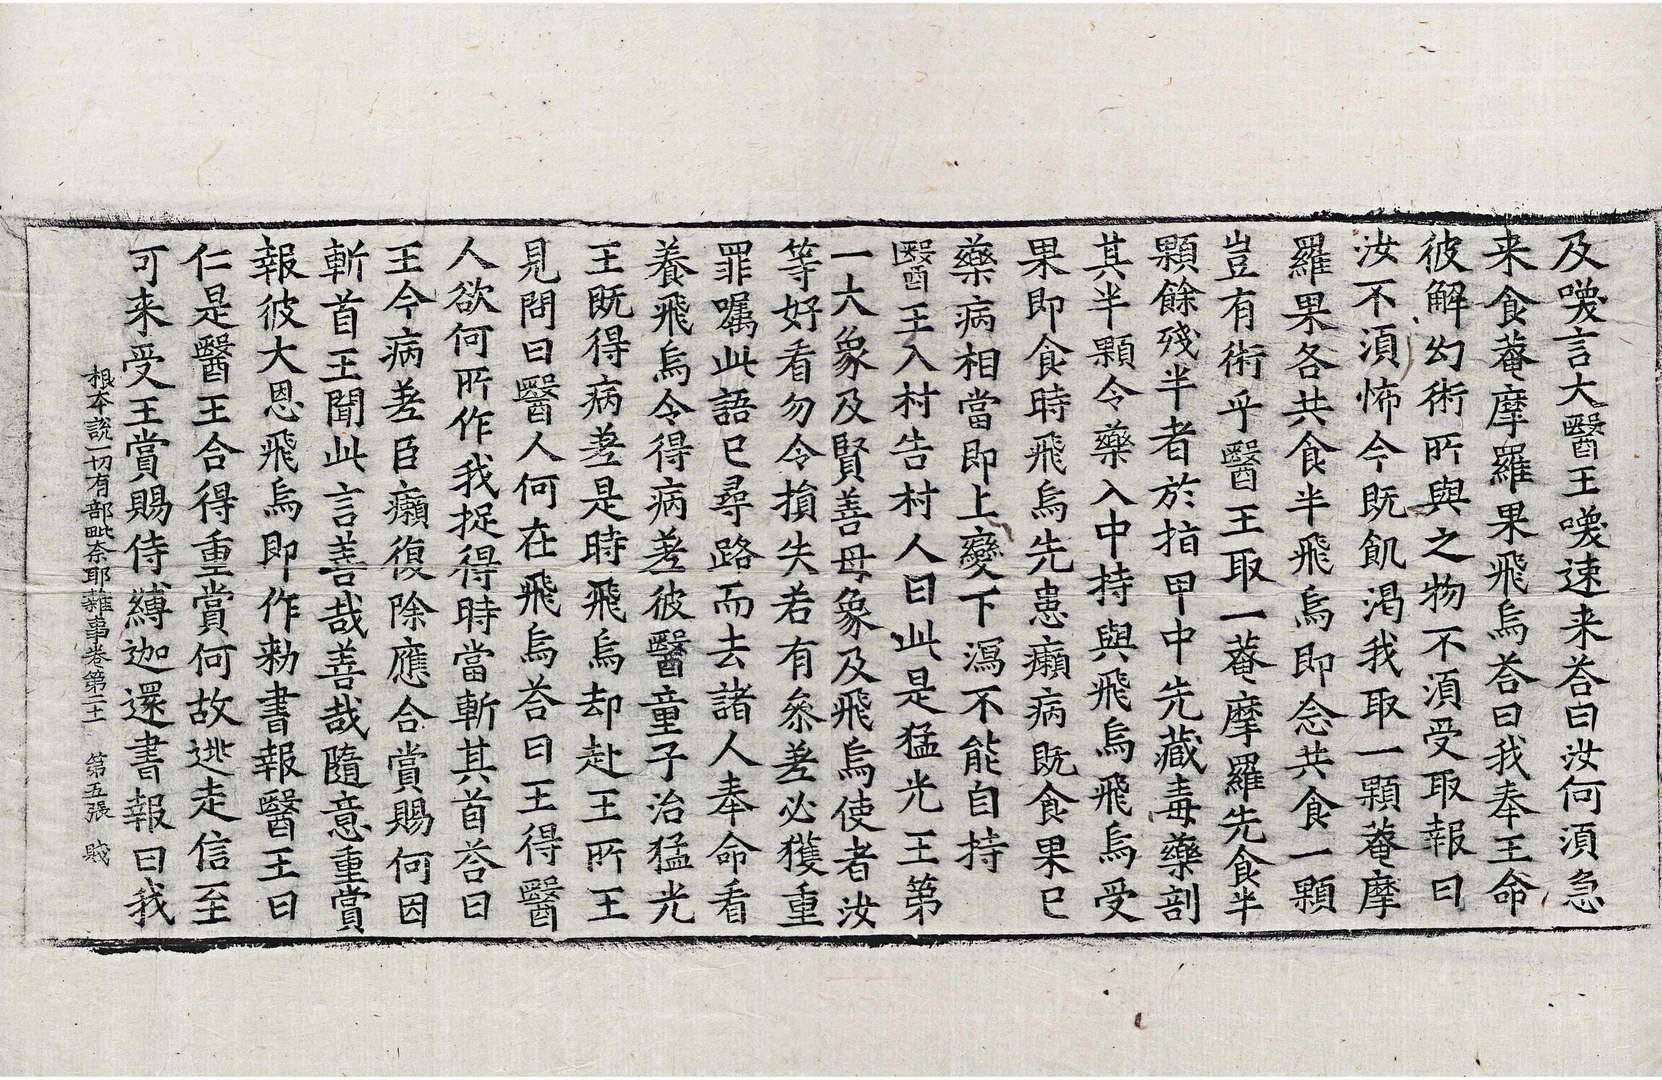 及喚言大醫王喚速来荅曰汝何湏急
来食菴摩羅果飛烏荅曰我奉王命
彼解幻術所與之物不湏受取報曰
汝不湏怖今既飢渴我取一顆菴摩
羅果各共食半飛烏即念共食一顆
豈有術乎醫王取一菴摩羅先食半
顆餘殘半者於指甲中先藏毒藥剖
其半顆令藥入中持與飛烏飛烏受
果即食時飛烏先患癩病既食果已
藥病相當即上變下瀉不能自持
醫王入村告村人曰此是猛光王第
一大象及賢善母象及飛烏使者汝
等好看勿令損失若有叅差必獲重
罪囑此語已尋路而去諸人奉命看
養飛烏令得病差彼醫童子治猛光
王既得病差是時飛烏却赴王所王
見問曰醫人何在飛烏荅曰王得醫
人欲何所作我捉得時當斬其首荅曰
王今病差臣癩復除應合賞賜何因
斬首王聞此言善哉善哉隨意重賞
報彼大恩飛烏即作勑書報醫王曰
仁是醫王合得重賞何故逃走信至
可来受王賞賜侍縛迦還書報曰我
根本說一切有部毗奈耶雜事卷第二十一　第五張　賤